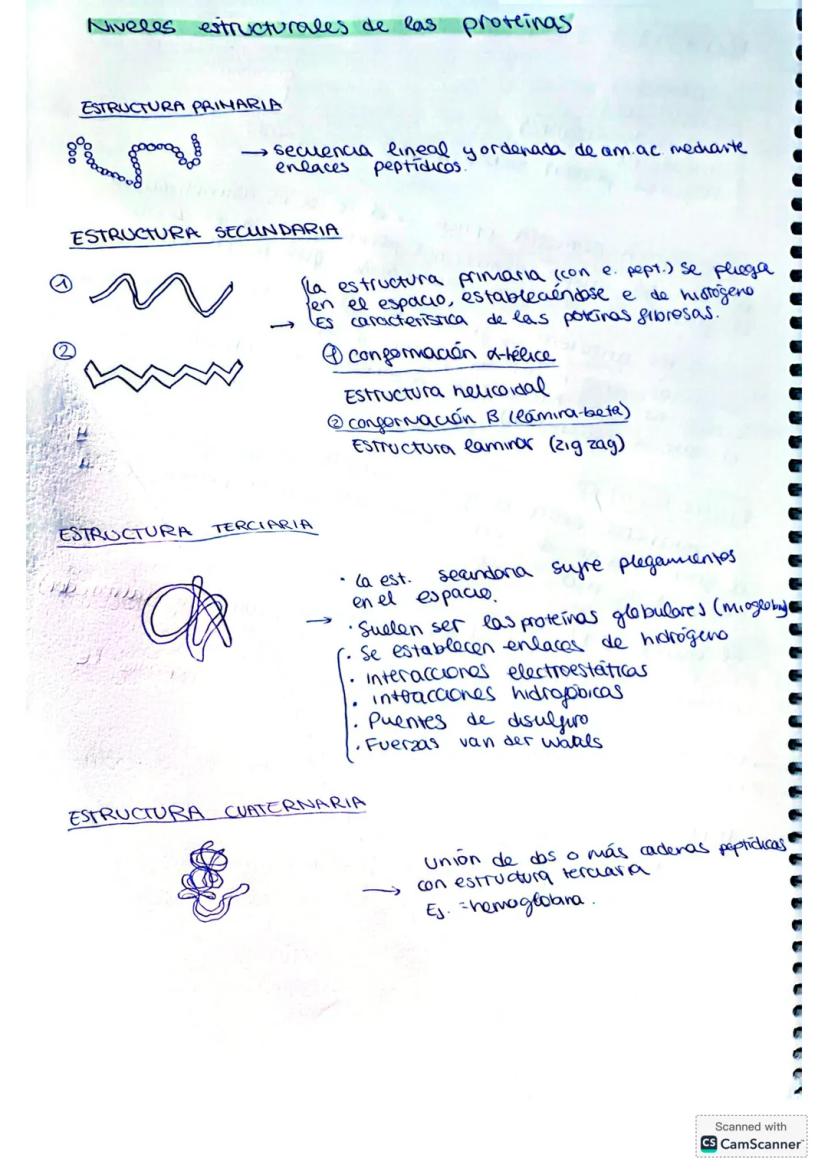 Niveles estructurales de las proteínas
ESTRUCTURA PRIMARIA
→ secuencia lineal y ordenada de am.ac. mediante
enlaces peptídicos.
ESTRUCTURA SECUNDARIA
① 
La estructura primaria (con e. pept.) se pliega
en el espacio, estableciéndose e de hidrógeno
→ Es característica de las proteínas fibrosas.
②
① conformación α-hélice
Estructura helicoidal
② conformación B (lámina-beta)
Estructura laminar (zig zag)
ESTRUCTURA TERCIARIA
· La est. secundaria sufre plegamientos
en el espacio.
→ · Suelen ser las proteínas globulares (mioglobin
· Se establecen enlaces de hidrógeno
· interacciones electroestáticas
· interacciones hidrofóbicas
· Puentes de disulfuro
· Fuerzas van der Waals
ESTRUCTURA CUATERNARIA
Unión de dos o más cadenas peptídicas
→ con estructura terciaria
Ej. = hemoglobina.
Scanned with
CS CamScanner